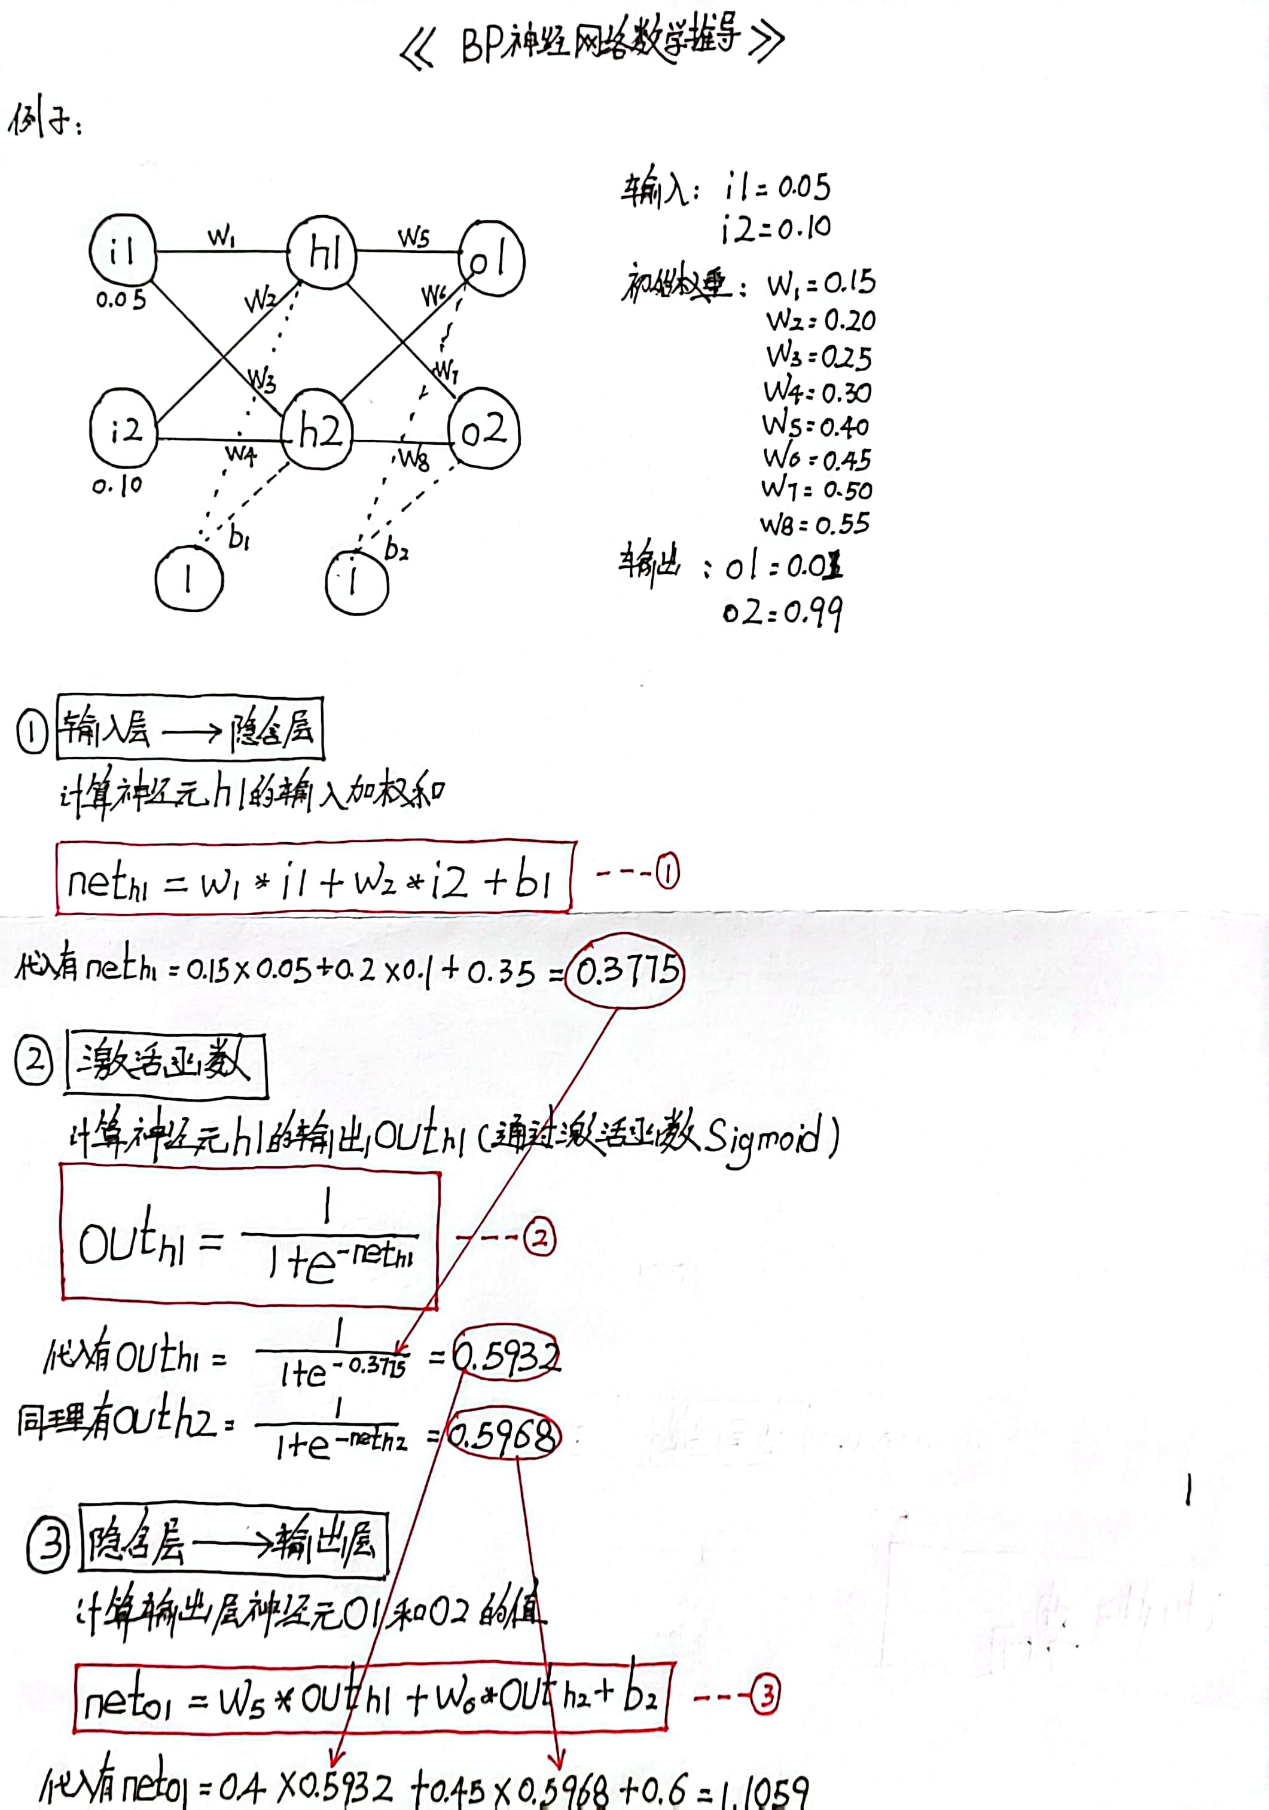 《 BP神经网络数学推导 》
例子:
i1 w₁ h1 w5 o1
0.05
w2 w6
w3 w7
i2 w4 h2 w8 o2
0.10
b₁ b₂
1 1
输入: i1=0.05
i2=0.10
初始权重: W₁=0.15
W2=0.20
W3=0.25
W4=0.30
W5=0.40
W6=0.45
W7=0.50
W8=0.55
输出: o1=0.01
o2=0.99
① 输入层 ⟶ 隐含层
计算神经元h1的输入加权和
net_h1 = w₁ * i1 + w₂ * i2 + b1 ---①
代入有 net_h1 = 0.15×0.05+0.2×0.1+0.35 = 0.3775
② 激活函数
计算神经元h1的输出outh1(通过激活函数Sigmoid)
out_h1 = 1/(1+e^-net_h1) ---②
代入有 outh1 = 1/(1+e^-0.3775) = 0.5932
同理有outh2 = 1/(1+e^-neth2) = 0.5968
③ 隐含层 ⟶ 输出层
计算输出层神经元O1和O2的值
net_o1 = W5 * out_h1 + W6 * out_h2 + b2 ---③
代入有 net_o1 = 0.4×0.5932+0.45×0.5968+0.6=1.1059
1